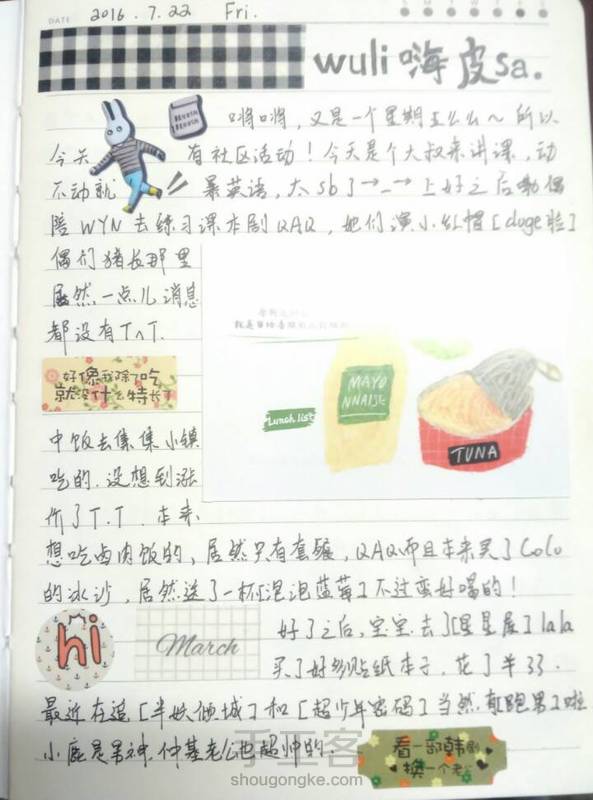 DATE 2016.7.22 Fri.
S M T W T F S
wuli 嗨皮sa.
嘚嘚，又是一个星期五么么~所以
今天 有社区活动！今天是个大叔来讲课，动
不动就 暴英语，太sb了→_→上好之后嘞偶
陪WYN去练习课本剧QAQ，她们演小红帽[doge脸]
偶们猪扒那里
居然一点儿消息
都没有T^T.
就是
MAYO
NNAISE
Lunch list
TUNA
好像我除了吃
就没什么特长了
中饭去集集小镇
吃的.没想到涨
价了T.T.本来
想吃卤肉饭的，居然只有套餐，QAQ而且本来买了Colo
的冰沙，居然送了一杯[泡泡蓝莓]不过蛮好喝的！
hi
March
好了之后，宝宝去了[星星屋]lala
买了好多贴纸本子，花了半33.
最近在追[半妖倾城]和[超少年密码]当然有[跑男]啦
小鹿是男神，仲基老公也超帅的.
看一部韩剧
换一个老公
手工客
shougongke.com